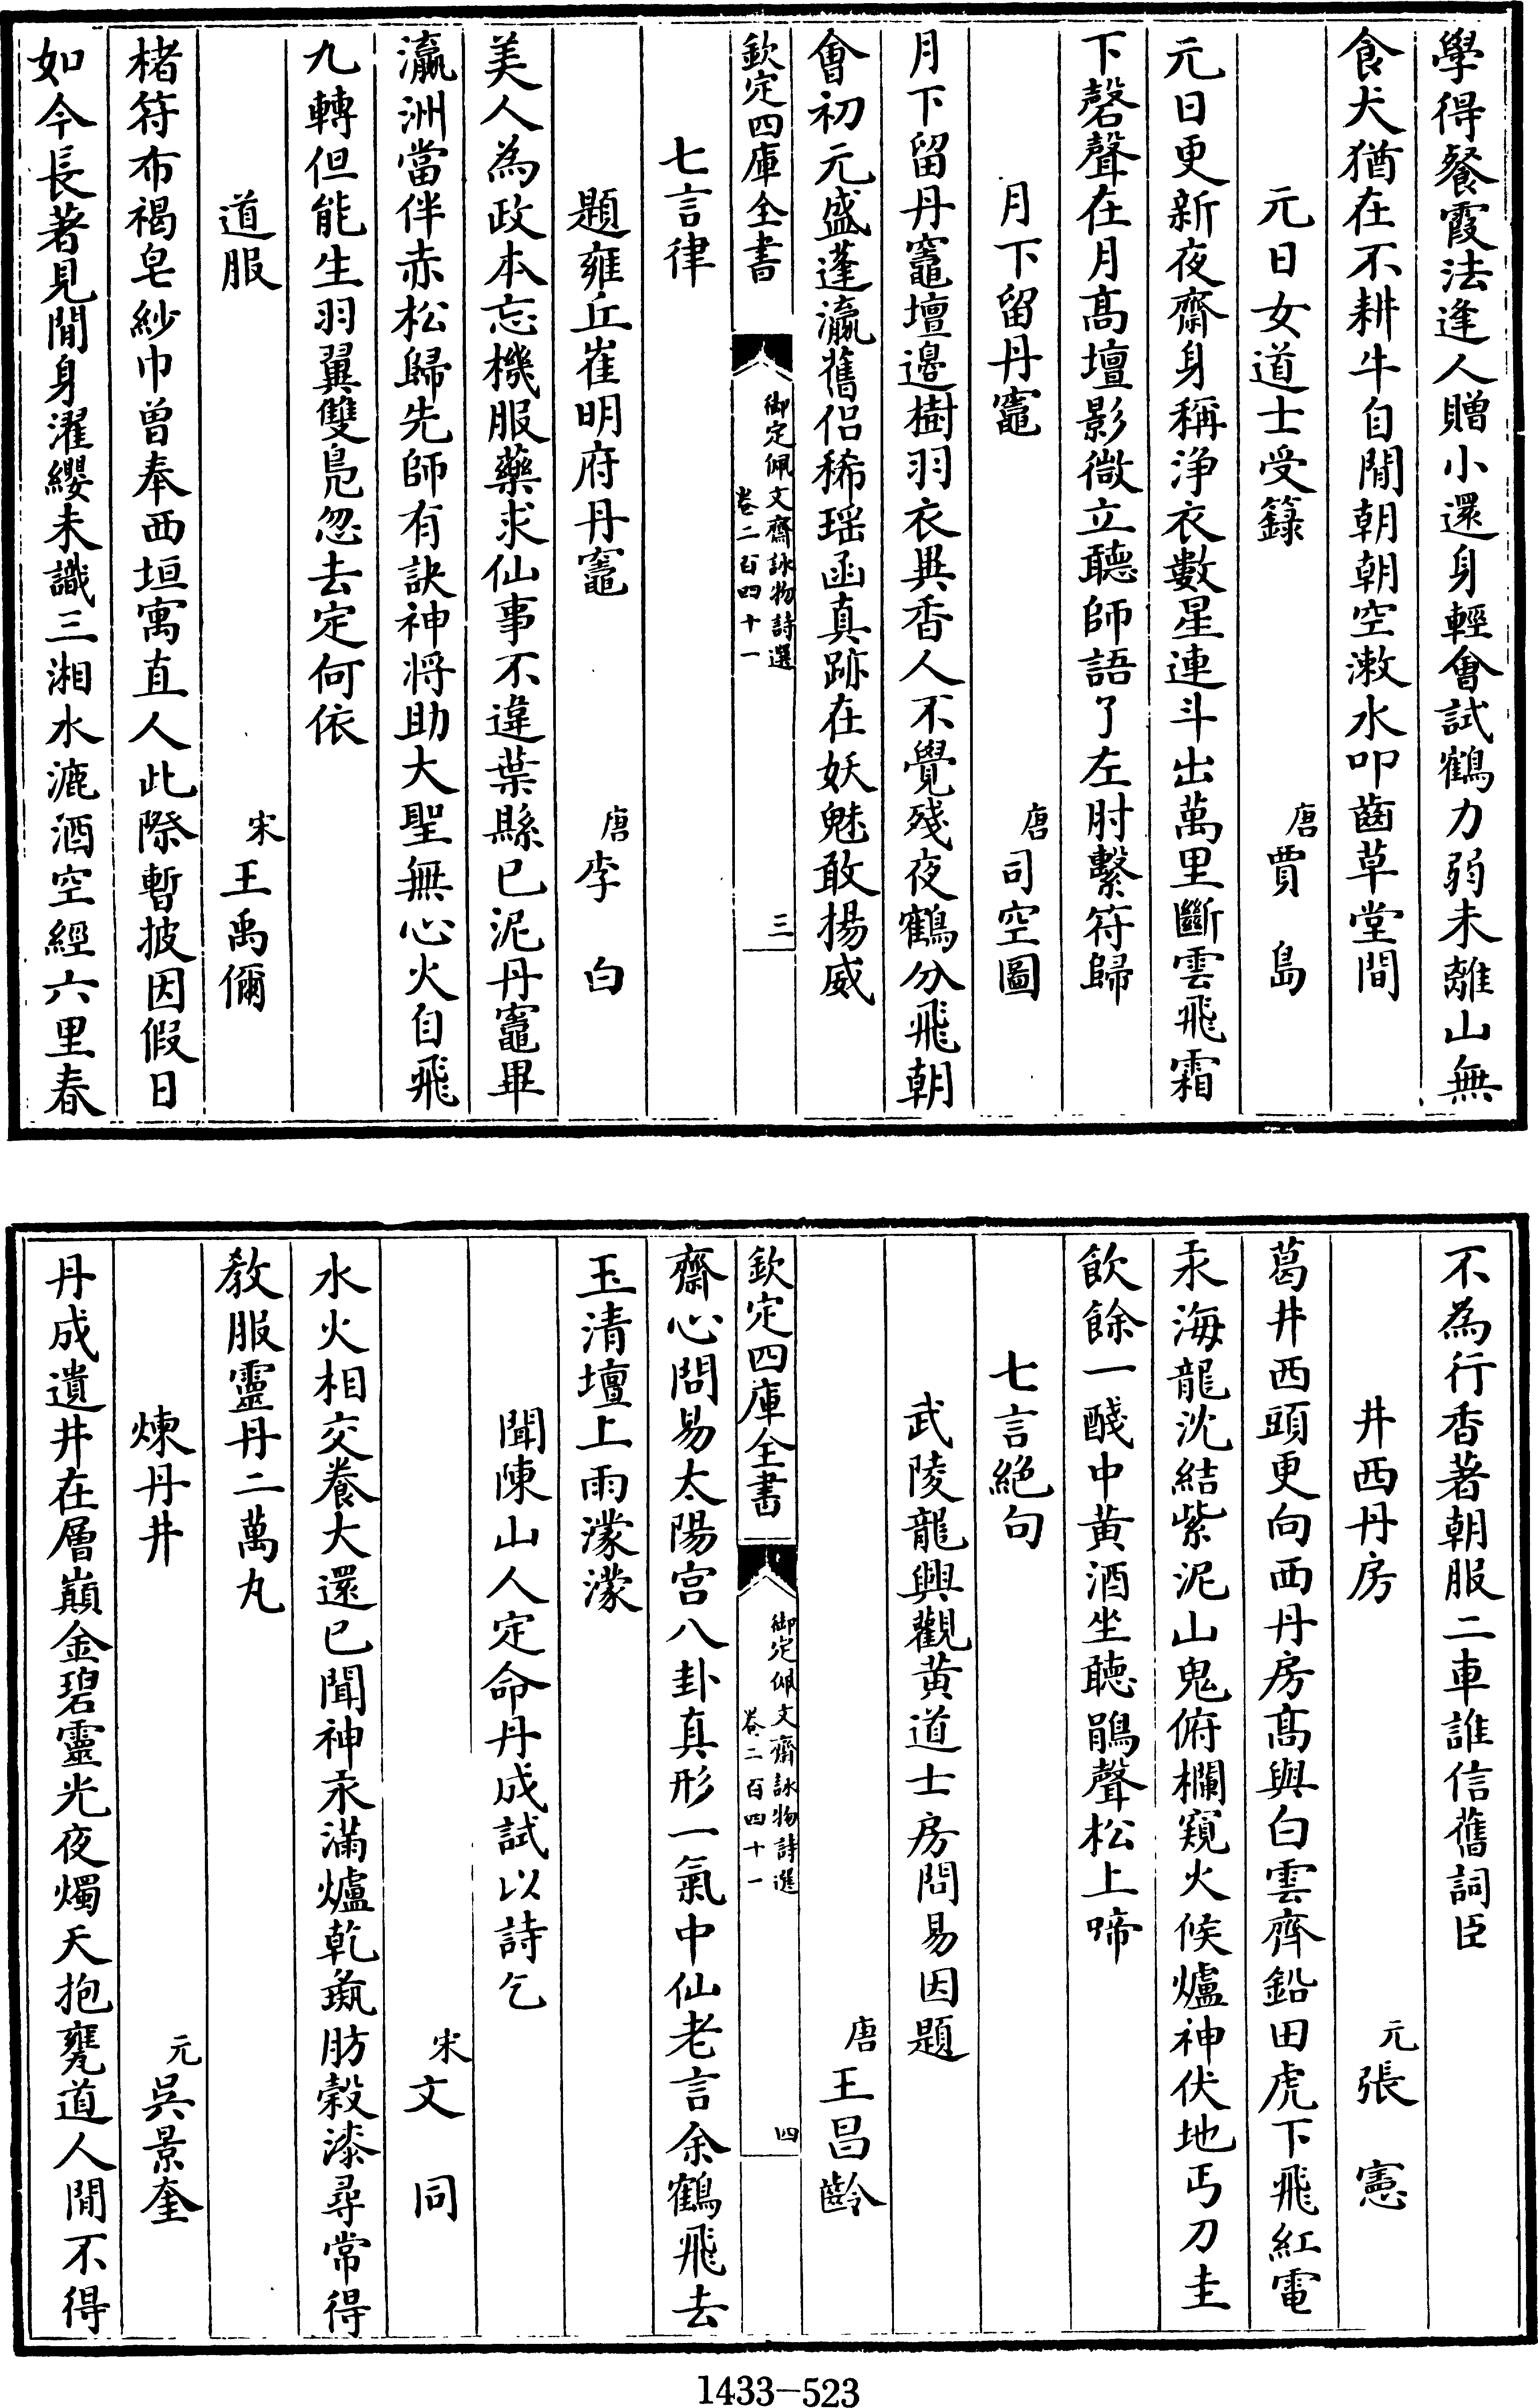 學得餐霞法逢人贈小還身輕會試鶴力弱未離山無
食犬猶在不耕牛自閒朝朝空漱水叩齒草堂間
元日女道士受籙
唐賈島
元日更新夜齋身稱浄衣數星連斗出萬里斷雲飛霜
下磬聲在月髙壇影微立聽師語了左肘繫符歸
月下留丹竈
唐司空圖
月下留丹竈壇邉樹羽衣異香人不覺殘夜鶴分飛朝
會初元盛蓬瀛舊侣稀瑶函真跡在妖魅敢揚威
欽定四庫全書
御定佩文齋詠物詩選
卷二百四十一
三
七言律
題雍丘崔明府丹竈
唐李白
美人為政本忘機服藥求仙事不違葉縣已泥丹竈畢
瀛洲當伴赤松歸先師有訣神将助大聖無心火自飛
九轉但能生羽翼雙鳬忽去定何依
道服
宋王禹偁
楮符布褐皂紗巾曾奉西垣寓直人此際暫披因假日
如今長著見閒身濯纓未識三湘水漉酒空經六里春
不為行香著朝服二車誰信舊詞臣
井西丹房
元張憲
葛井西頭更向西丹房髙與白雲齊鉛田虎下飛紅電
汞海龍沈結紫泥山鬼俯欄窺火候爐神伏地丐刀圭
飲餘一醆中黄酒坐聽鵑聲松上啼
七言絶句
武陵龍興觀黄道士房問易因題
唐王昌齡
欽定四庫全書
御定佩文齋詠物詩選
卷二百四十一
四
齋心問易太陽宫八卦真形一氣中仙老言余鶴飛去
玉清壇上雨濛濛
聞陳山人定命丹成試以詩乞
宋文同
水火相交養大還已聞神汞滿爐乾瓻肪榖漆尋常得
教服靈丹二萬丸
煉丹井
元吳景奎
丹成遺井在層巔金碧靈光夜燭天抱甕道人閒不得
1433-523